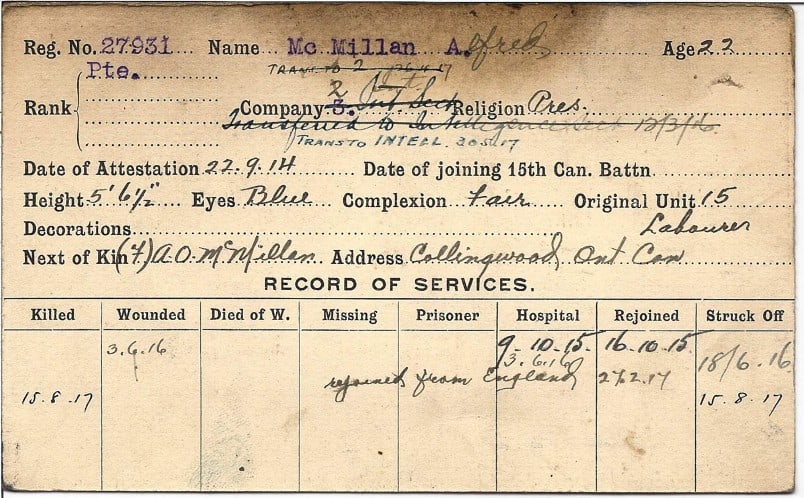 Reg. No. 27931 Name Mc Millan A.lfred Age 22
Pte. TRANS to 2 26.4.17
2
Rank Company 3. Int Sect Religion Pres.
Transferred to Intelligence Sect 12/3/16
TRANS TO INTELL 20.5.17
Date of Attestation 22.9.14 Date of joining 15th Can. Battn.
Height 5' 6½" Eyes Blue Complexion Fair Original Unit 15
Decorations Labourer
Next of Kin (F) A.O. McMillan Address Collingwood, Ont Can
RECORD OF SERVICES.
Killed Wounded Died of W. Missing Prisoner Hospital Rejoined Struck Off
9-10-15. 16-10-15
3.6.16 3.6.16 18/6.16
rejoined from England 27.2.17
15.8.17 15.8.17